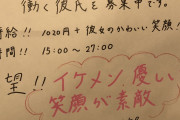 働く彼氏を募集中です。
時給!! 1020円+彼女のかわいい笑顔!
時間!! 15:00〜27:00
望!!
イケメン 優しい
笑顔が素敵